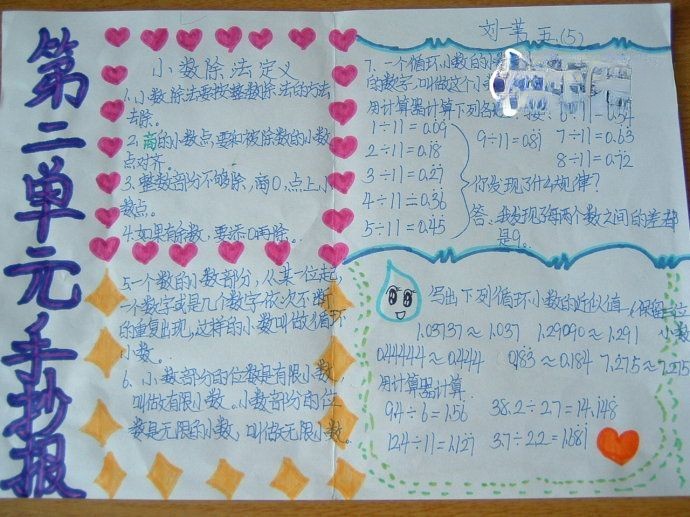 第二单元手抄报
小数除法定义
1、小数除法要按整数除法的方法
去除。
2、商的小数点要和被除数的小数
点对齐。
3、整数部分不够除，商0，点上小
数点。
4、如果有余数，要添0再除。
5、一个数的小数部分，从某一位起，
一个数字或是几个数字依次不断
的重复出现，这样的小数叫做循环
小数。
6、小数部分的位数是有限小数，
叫做有限小数。小数部分的位
数是无限的小数，叫做无限小数。
五(5)
7、一个循环小数的小
的数字，叫做这个小
用计算器计算下列各
1÷11=0.0̇9̇
2÷11=0.1̇8̇
3÷11=0.2̇7̇
4÷11=0.3̇6̇
5÷11=0.4̇5̇
9÷11=0.8̇1̇ 7÷11=0.6̇3̇
8÷11=0.7̇2̇
你发现了什么规律？
答：我发现了每两个数之间的差都
是9。
写出下列循环小数的近似值（保留三位
小数
1.03737≈1.037 1.29090≈1.291
0.44444≈0.444 0.1̇83̇≈0.184 7.275≈7.275
用计算器计算
9.4÷6=1.56̇ 38.2÷2.7=14.1̇48̇
12.4÷11=1.12̇7̇ 3.7÷2.2=1.68̇1̇